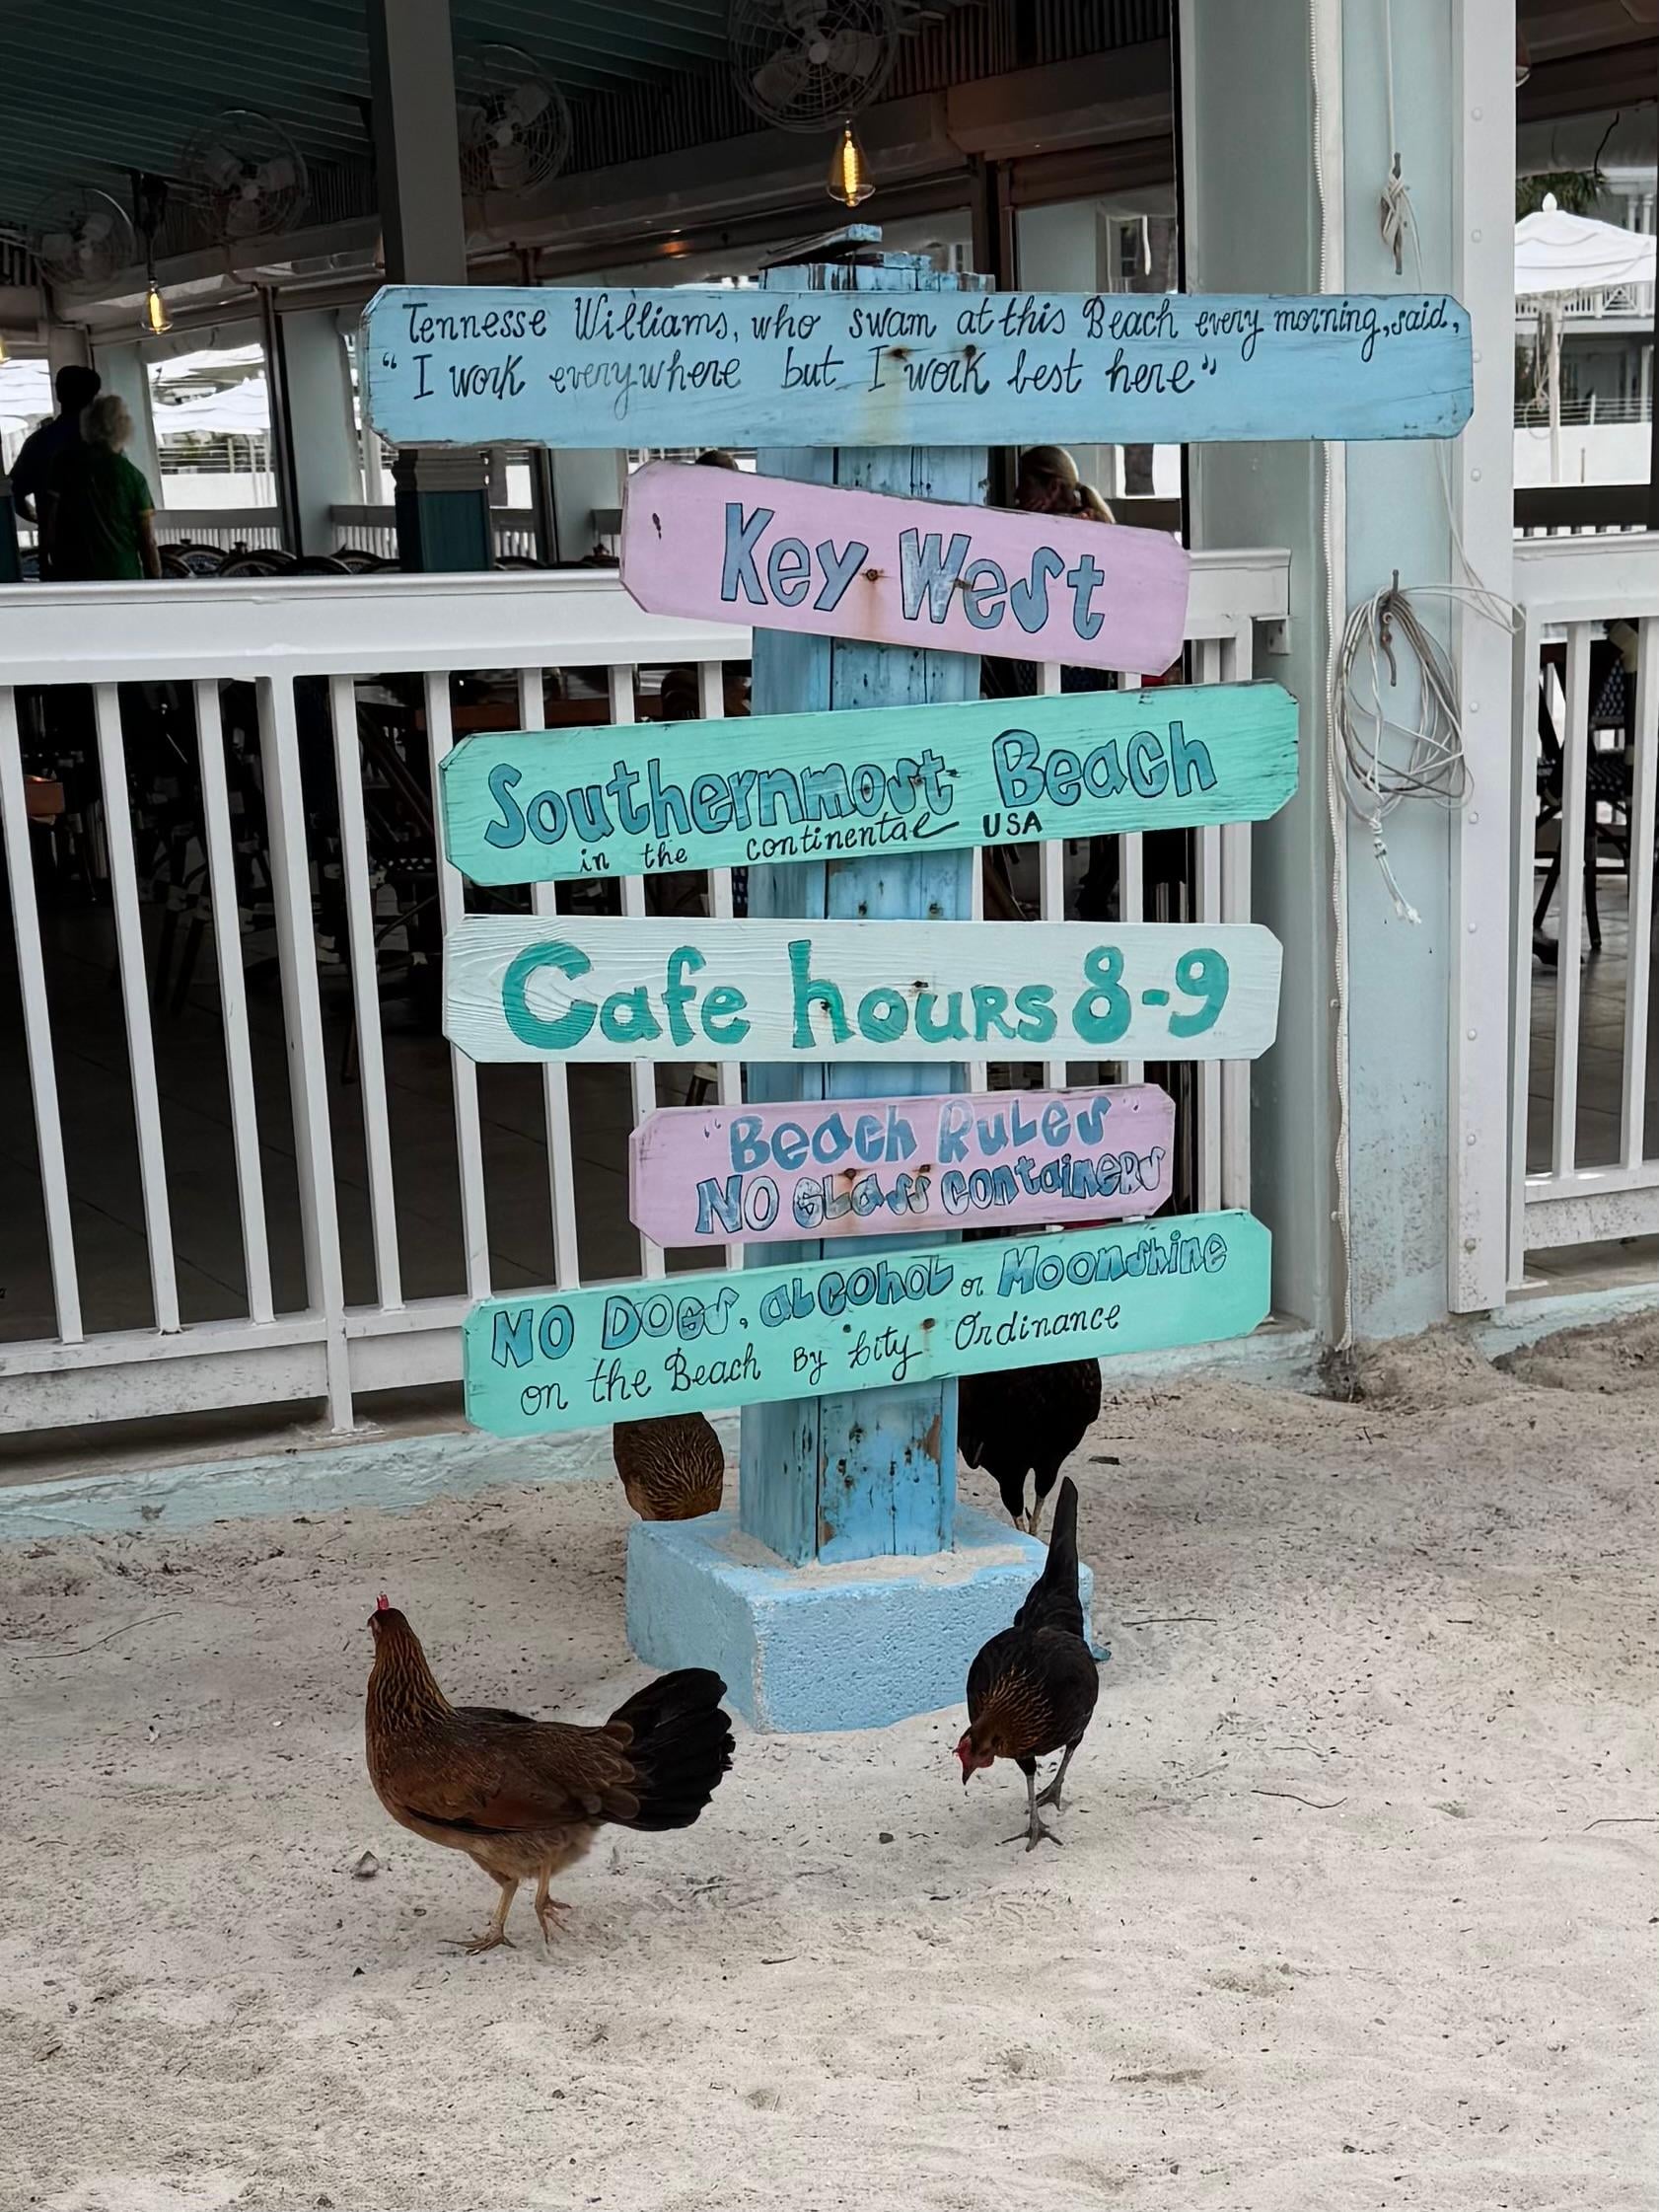 Tennesse Williams, who swam at this Beach every morning, said,
"I work everywhere but I work best here"
Key West
Southernmost Beach
in the continental USA
Cafe hours 8-9
"Beach Rules"
NO GLass containers
NO DOGS, aLcOhOL or Moonshine
on the Beach By City Ordinance